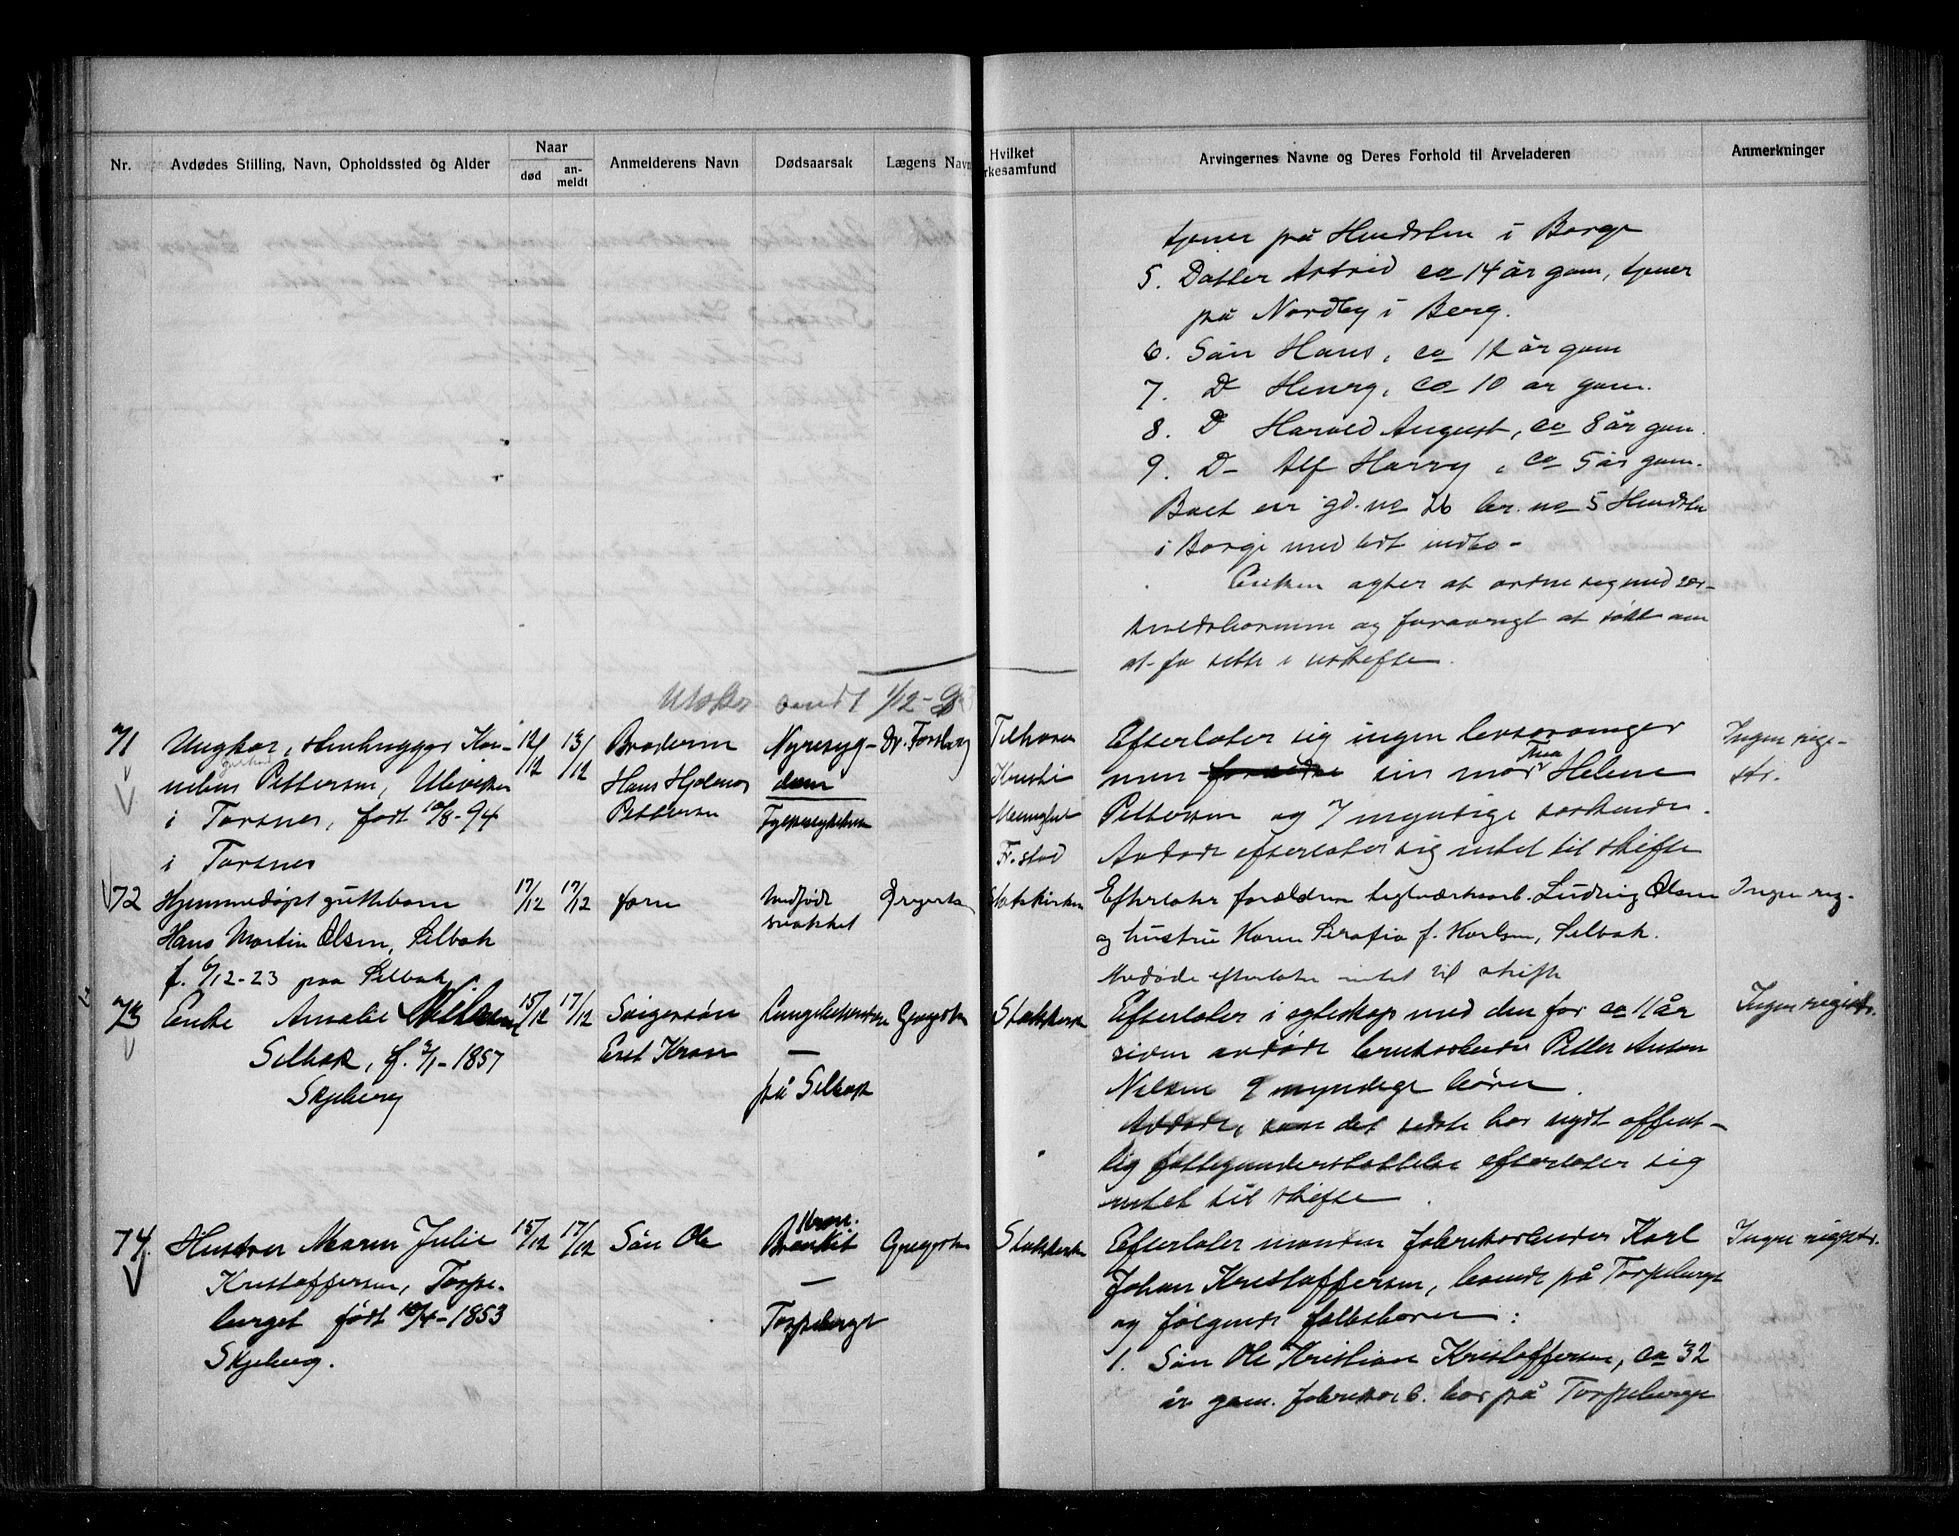 Nr.
Avdødes Stilling, Navn, Opholdssted og Alder
Naar
død
an-
meldt
Anmelderens Navn
Dødsaarsak
Lægens Navn
Hvilket
rkesamfund
Arvingernes Navne og Deres Forhold til Arveladeren
Anmerkninger
tjener på Hundslen i Borge
5. Datter Astrid ca 14 år gam, tjener
på Nordby i Berg.
6. Sön Hans, ca 12 år gam
7. D Henry, ca 10 år gam.
8. D Harald August, ca 8 år gam.
9. D- Alf Harry, ca 5 år gam.
Boet eier gd. no 26 br. no 5 Hundslen
i Borge med lidt indbo-
Enken agter at ordne sig med sær-
kuldsbarnene og forøvrigt at søke om
at få sitte i uskifte.
Utskr sendt 1/12-23
71
Ungkar, stenhugger Kor-
nelius Pettersen, Ulviken
i Torsnes, født 10/8-94
i Torsnes
12/12
13/12
Broderen
Hans Hjalmar
Pettersen
Nyresyg-
dom
Fylkessykehus
Dr. Forsberg
Tilhører
Kristi
Menighet
F.stad
Efterlater sig ingen livsarvinger
men foreldre sin mor Thea Helene
Pettersen og 7 myndige søskende.
Avdøde efterlater sig intet til skifte
Ingen regi-
str.
72
Hjemmedøpt guttebarn
Hans Martin Olsen, Selbak
f. 6/12-23 paa Selbak
17/12
17/12
faren
Medfødt
svakhet
Gregersen
Statskirken
Efterlater forældrene teglverksarb. Ludvig Olsen
og hustru Karen Serafia f. Karlsen, Selbak.
Avdøde efterlater intet til skifte
Ingen reg.
73
Enke Amalie Nilsen
Selbak, f. 3/1-1857
Skjeberg
15/12
17/12
Svigersön
Erst Kran
Lungebetændelse
—
på Selbak
Gregersen
Statskirken
Efterlater i egteskap med den for ca 11 år
siden avdøde bruksarbeider Petter Anton
Nilsen 9 myndige börn.
Avdøde, som det sidste har nydt offent-
lig fattigunderstøttelse efterlater sig
intet til skifte.
Ingen registr.
74.
Hustru Maren Julie
Kristoffersen, Torpe-
berget født 10/4-1853
Skjeberg.
15/12
17/12
Sön Ole
Kron.
Bronkit
—
Torpeberget
Gregersen
Statskirken
Efterlater manden fabrikarbeider Karl
Johan Kristoffersen, boende på Torpeberget
og følgende fællesbarn:
1. Sön Ole Kristian Kristoffersen, ca 32
år gam. fabrikarb. bor på Torpeberget
Ingen registr.